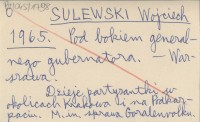 SULEWSKI Wojciech
1965. Pod bokiem general-
nego gubernatora. — War-
szawa.
Dzieje partyzantki w
okolicach Krakowa i na Podkar-
paciu. M.in. sprawa Goralenvolku.